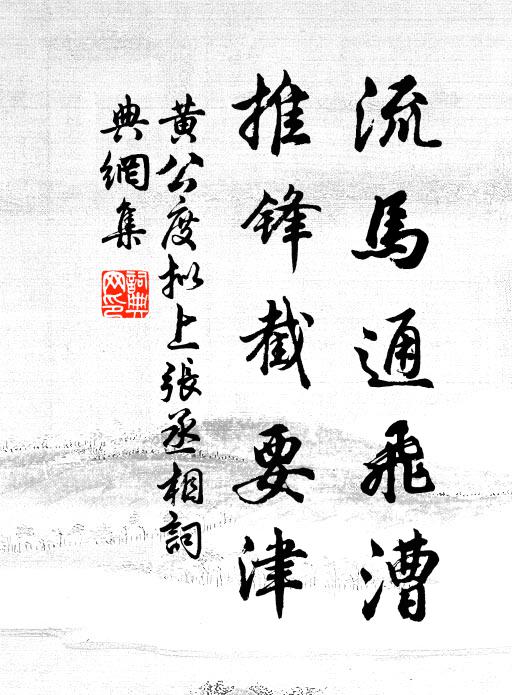 流馬通飛漕
推鋒截要津
黄公度拟上張丞相詞
典網集
詞典網印